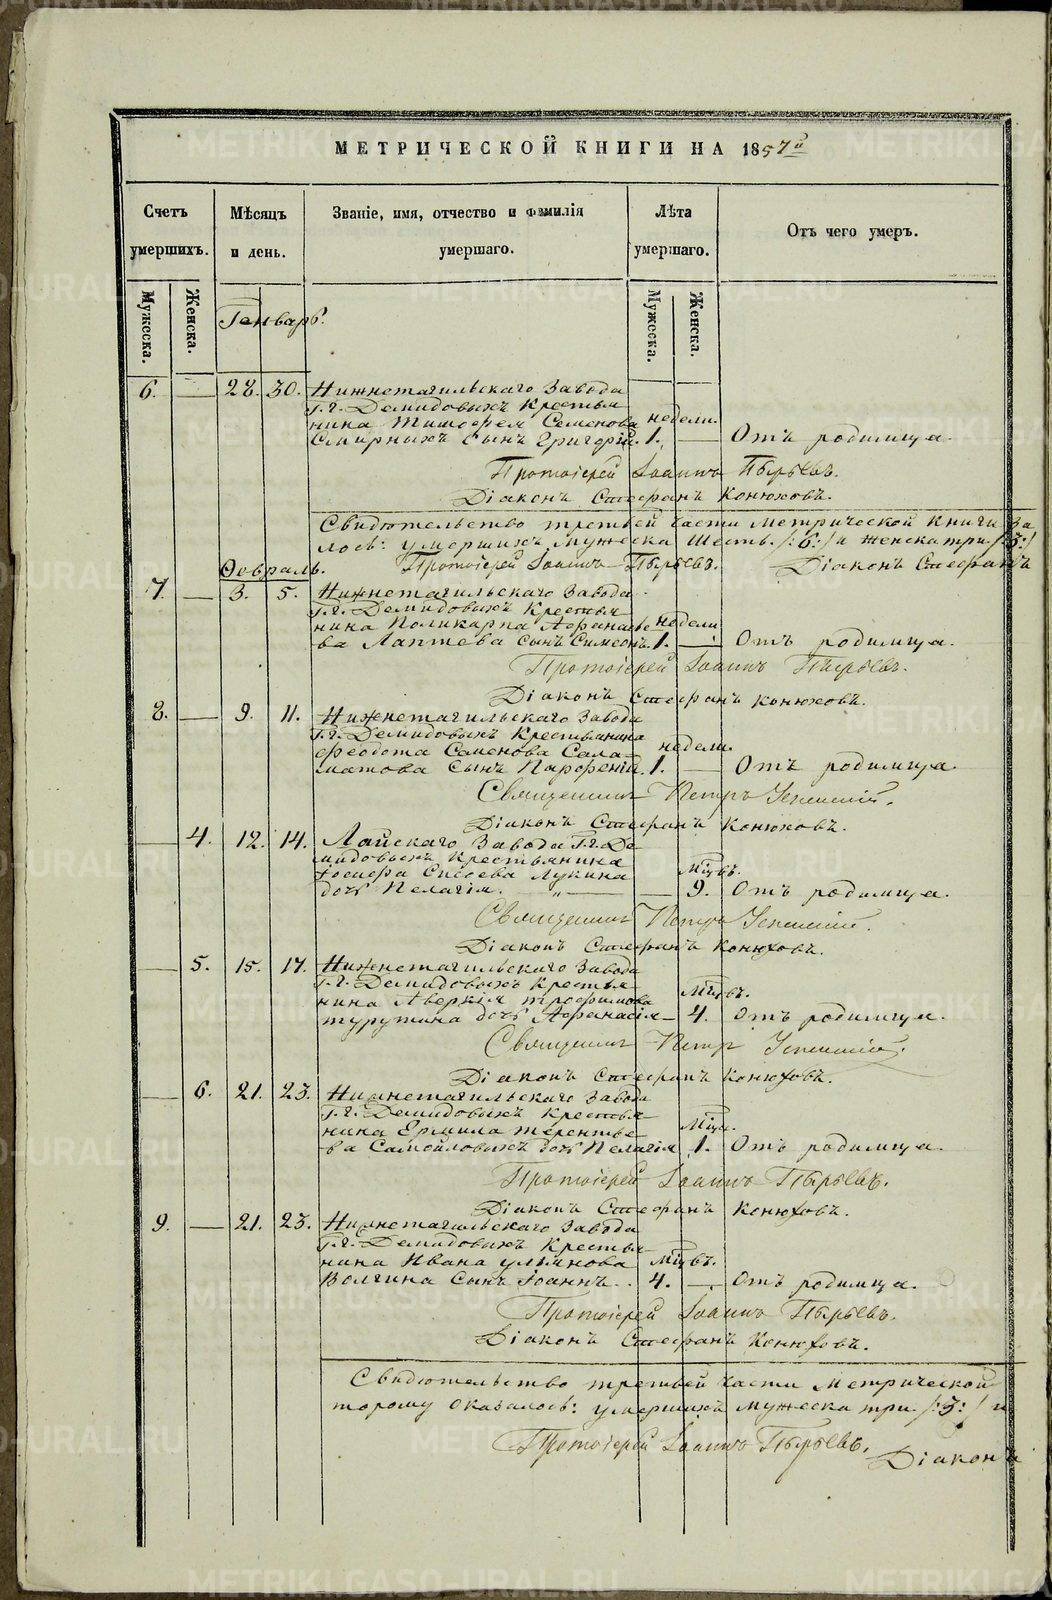 МЕТРИЧЕСКОЙ КНИГИ НА 1857й
Счетъ умершихъ.
Мѣсяцъ и день.
Званіе, имя, отчество и фамилія умершаго.
Лѣта умершаго.
Отъ чего умеръ.
Мужеска.
Женска.
Мужеска.
Женска.
Генварь.
6. — 28. 30. Нижнетагильскаго Завода
Г.г. Демидовыхъ Крестья
нина Тимофея Семенова недели.
Смирныхъ сынъ Григорій. 1. — Отъ родимца.
Протоіерей Іоаннъ Пырьевъ.
Діаконъ Стефанъ Конюховъ.
Свидѣтельство третьей части Метрической Книги за
лось: умершихъ мужеска шесть /:6:/ и женска три /:3:/
Протоіерей Іоаннъ Пырьевъ. Діаконъ Стефанъ
Февраль.
7. — 3. 5. Нижнетагильскаго Завода
Г.г. Демидовыхъ Крестья
нина Поликарпа Афанасье недели
ва Лаптева сынъ Симеонъ. 1. — Отъ родимца.
Протоіерей Іоаннъ Пырьевъ.
Діаконъ Стефанъ Конюховъ.
8. — 9. 11. Нижнетагильскаго Завода
Г.г. Демидовыхъ Крестьянина
Феодота Семенова Сала- недели.
матова сынъ Парфеній. 1. — Отъ родимца.
Священникъ Петръ Успенскій.
Діаконъ Стефанъ Конюховъ.
— 4. 12. 14. Лайскаго Завода Г.г. Де
мидовыхъ Крестьянина
Іосифа Сысоева Лукина мцвъ.
дочь Пелагія. — „ — — 9. Отъ родимца.
Священникъ Петръ Успенскій.
Діаконъ Стефанъ Конюховъ.
— 5. 15. 17. Нижнетагильскаго Завода
Г.г. Демидовыхъ Крестья
нина Аверкія Трофимова мцвъ.
Турутина дочь Афанасія — 4. Отъ родимца.
Священникъ Петръ Успенскій.
Діаконъ Стефанъ Конюховъ.
— 6. 21. 23. Нижнетагильскаго Завода
Г.г. Демидовыхъ Крестья
нина Ермила Терентье- мцъ.
ва Самойловыхъ дочь Пелагія 1. Отъ родимца.
Протоіерей Іоаннъ Пырьевъ.
Діаконъ Стефанъ Конюховъ.
9. — 21. 23. Нижнетагильскаго Завода
Г.г. Демидовыхъ Крестья
нина Ивана Ульянова мцвъ.
Волгина сынъ Іоаннъ. 4. — Отъ родимца.
Протоіерей Іоаннъ Пырьевъ.
Діаконъ Стефанъ Конюховъ.
Свидѣтельство третьей части Метрической
торому оказалось: умершихъ мужеска три /:3:/ и
Протоіерей Іоаннъ Пырьевъ. Діаконъ
METRIKI.GASO-URAL.RU